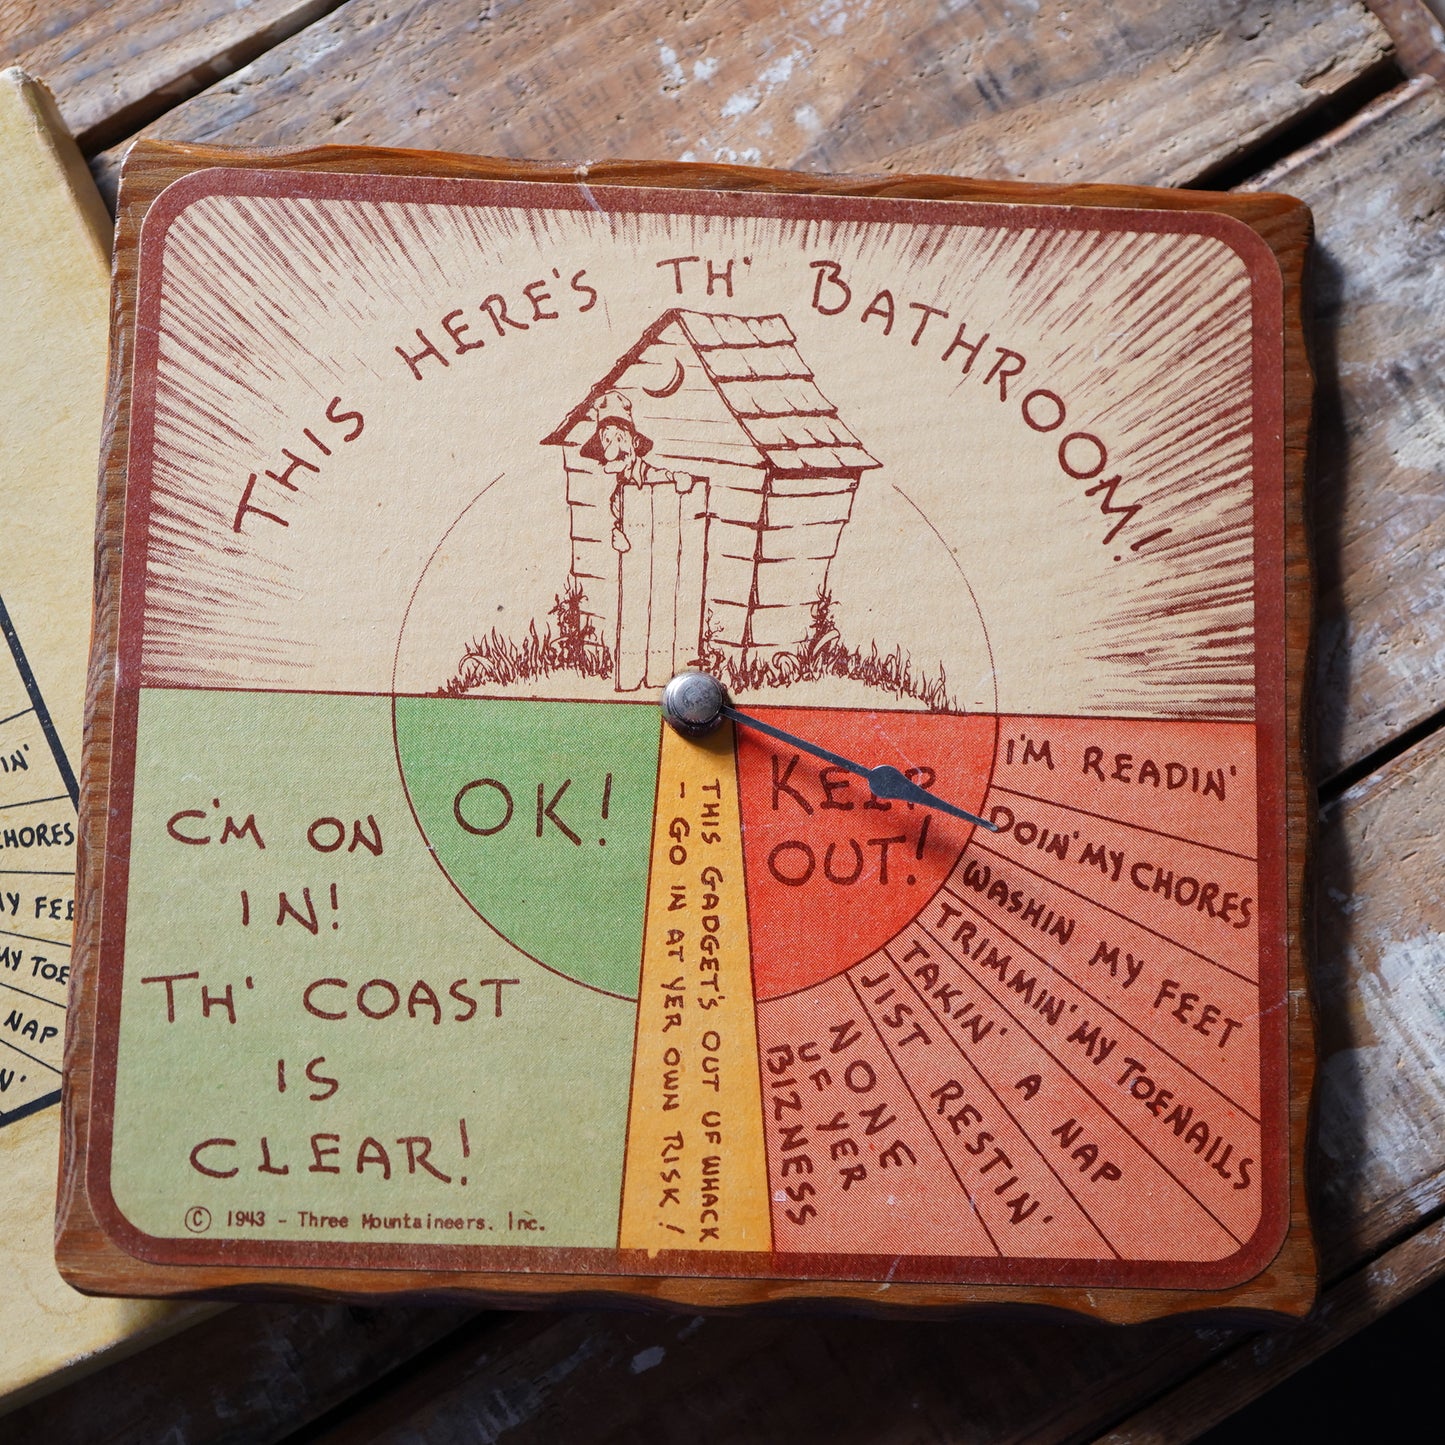 THIS HERE'S TH' BATHROOM!
OK!
C'M ON
IN!
TH' COAST
IS
CLEAR!
© 1943 - Three Mountaineers, Inc.
THIS GADGET'S OUT UF WHACK
- GO IN AT YER OWN RISK!
KEEP
OUT!
I'M READIN'
DOIN' MY CHORES
WASHIN MY FEET
TRIMMIN' MY TOENAILS
TAKIN' A NAP
JIST RESTIN'
NONE
UF YER
BIZNESS
IN'
CHORES
MY FEE
MY TOE
NAP